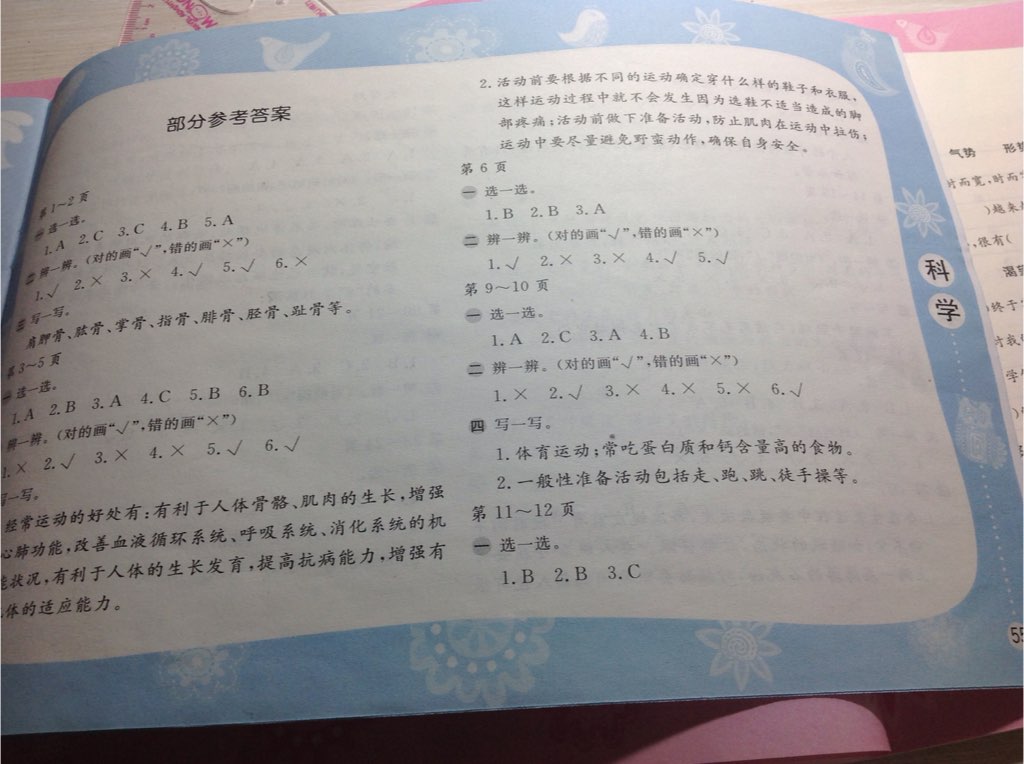 部分参考答案
第1~2页
一 选一选。
1.A 2.C 3.C 4.B 5.A
二 辨一辨。(对的画“√”,错的画“×”)
1.√ 2.× 3.× 4.√ 5.√ 6.×
三 写一写。
肩胛骨、肱骨、掌骨、指骨、腓骨、胫骨、趾骨等。
第3~5页
一 选一选。
1.A 2.B 3.A 4.C 5.B 6.B
辨一辨。(对的画“√”,错的画“×”)
1.× 2.√ 3.× 4.× 5.√ 6.√
写一写。
经常运动的好处有:有利于人体骨骼、肌肉的生长,增强
心肺功能,改善血液循环系统、呼吸系统、消化系统的机
能状况,有利于人体的生长发育,提高抗病能力,增强有
体的适应能力。
2.活动前要根据不同的运动确定穿什么样的鞋子和衣服,
这样运动过程中就不会发生因为选鞋不适当造成的脚
部疼痛;活动前做下准备活动,防止肌肉在运动中拉伤;
运动中要尽量避免野蛮动作,确保自身安全。
第6页
一 选一选。
1.B 2.B 3.A
二 辨一辨。(对的画“√”,错的画“×”)
1.√ 2.× 3.× 4.√ 5.√
第9~10页
一 选一选。
1.A 2.C 3.A 4.B
二 辨一辨。(对的画“√”,错的画“×”)
1.× 2.√ 3.× 4.× 5.× 6.√
四 写一写。
1.体育运动;常吃蛋白质和钙含量高的食物。
2.一般性准备活动包括走、跑、跳、徒手操等。
第11~12页
一 选一选。
1.B 2.B 3.C
科
学
气势 形
时而宽,时而“
)越来
,很有(
渴望
)终于
对我
学
55
SNOW